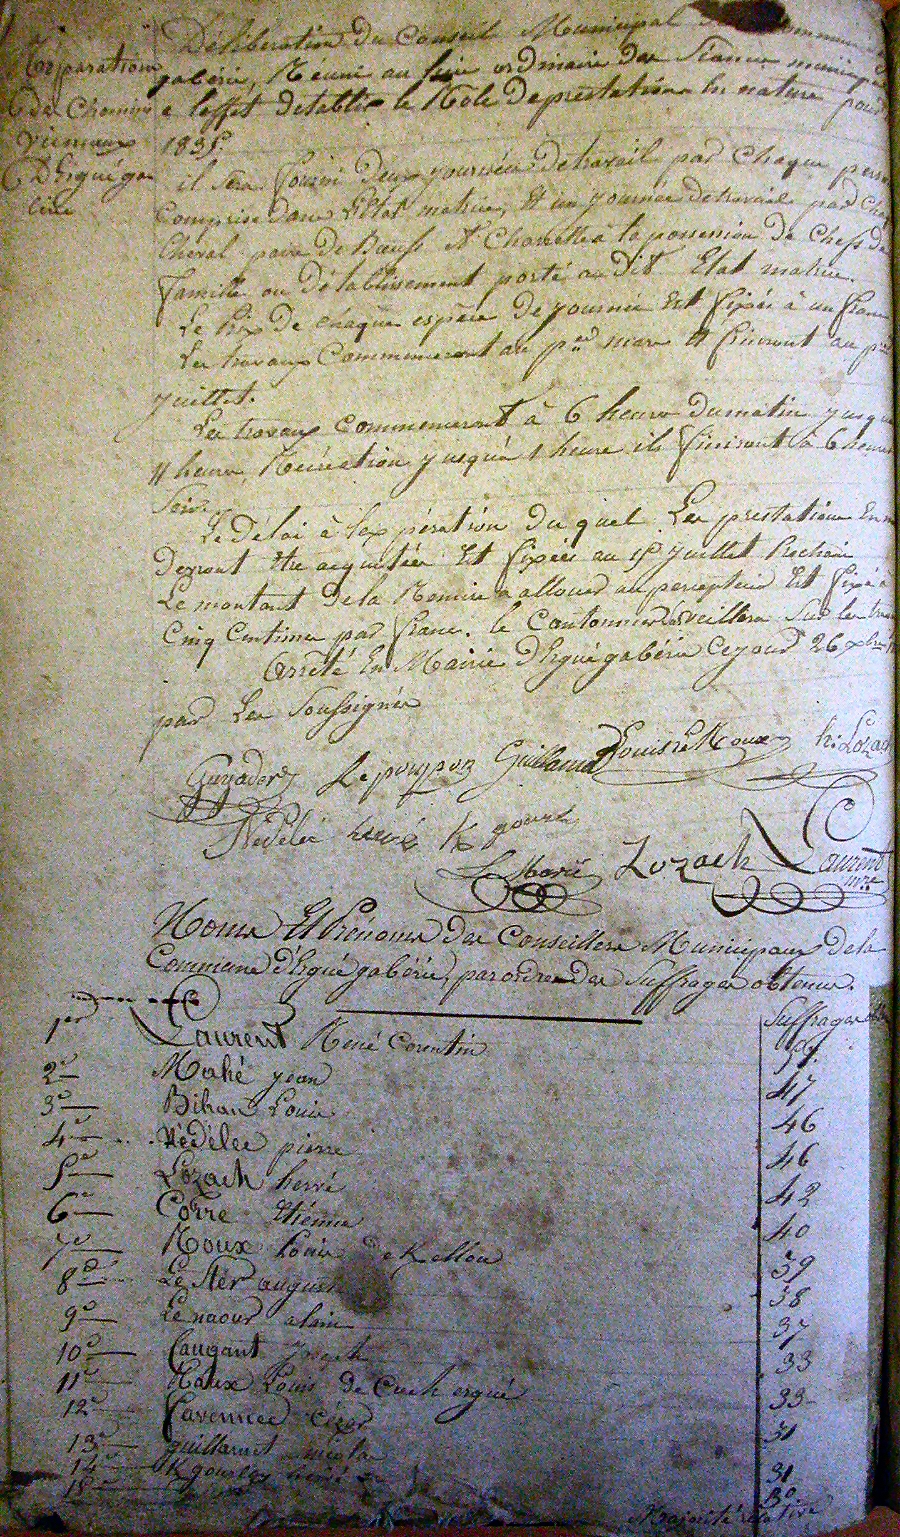 Réparations
de Chemins
vicinaux
D'Ergué ga
béric
Délibération du Conseil Municipal
gabéric, Réuni au ordinaire des Séances
à l'effet d'établir le Rôle de prestations En nature pour
1835
il Sera fourni Deux journées de travail par Chaque
Comprise dans L'Etat matrice, Et un journée de travail par
Cheval paire de Boeufs Et Charettes à la possession de Chefs de
famille ou D'établissement porté au Dit Etat matrice.
Le Prix de chaque espèce de journée Est fixée à un franc
Les travaux Commenceront au p.er mars Et finiront au
juillet.
Les travaux commenceront à 6 heures du matin jusqu
11 heures, Récréation jusqu'à 1 heure ils finiront à 6 heures
Soir.
Le délai à l'experation du quel Les prestations En
Devront Etre acquitées Est fixées au juillet Prochain
Le montant de la Remise a allouer au percepteur Est fixé à
Cinq Centimes par franc. le Cantonnier Surveillera Sur les
Arrêté En Mairie d'Erguégabéric Ce jour 26 xbre
par Les Soussignés
Guyader Le pourpon Guillamet Louis Le Roux h. Lozach
Nédélec hervé K gourl
Le Maire Lozach Laurent
Noms Et Prénoms des Conseillers Municipaux de la
Commune d'Ergué gabéric, par ordre des Suffrages obtenus.
Suffrages
1er Laurent René Corentin
2e Mahé jean 47
3e Bihan Louis 46
4e Nédélec pierre 46
5e Lozach hervé 42
6e Corre Etienne 40
7e Roux Louis de Kellou 39
8e Le Ster augustin 38
9e Le naour alain 37
10e Caugant Joseph 33
11e Roux Louis De Creh ergué 33
12e Cavennec 31
13e guillarmet nicolas 31
14e K gourl 30
15e
Majorité relative